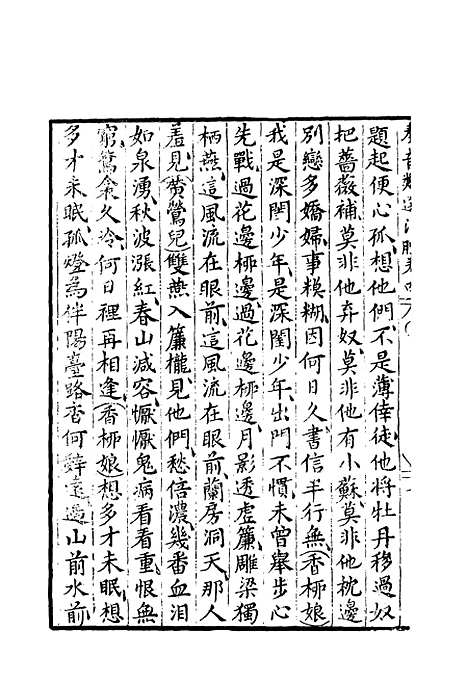 題起便心孤想他們不是薄倖徒他將牡丹移過奴
把薔薇補莫非他弃奴莫非他有小蘇莫非他枕邊
別戀多嬌婦事模糊因何日久書信半行無(香柳娘)
我是深閨少年是深閨少年出門不慣未曾舉步心
先戰過花邊柳邊過花邊柳邊月影透虛簾雕梁獨
栖燕這風流在眼前這風流在眼前蘭房洞天那人
羞見(黃鶯兒)雙燕入簾櫳見他們愁倍濃幾番血淚
如泉湧秋波漲紅春山減容懨懨鬼病看看重恨無
窮鴛衾久冷何日裡再相逢(香柳娘)想多才未眠想
多才未眠孤燈為伴陽臺路杳何辭遠過山前水前